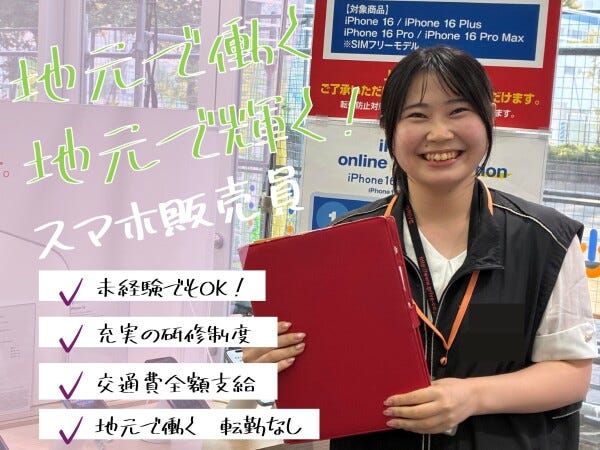 地元で働く
地元で輝く！
スマホ販売員
未経験でもOK！
充実の研修制度
交通費全額支給
地元で働く　転勤なし
【対象商品】
iPhone 16 / iPhone 16 Plus
iPhone 16 Pro / iPhone 16 Pro Max
※SIMフリーモデル
ご了承いただ
だけます。
転売防止対
います。
online
iPhone 16
1